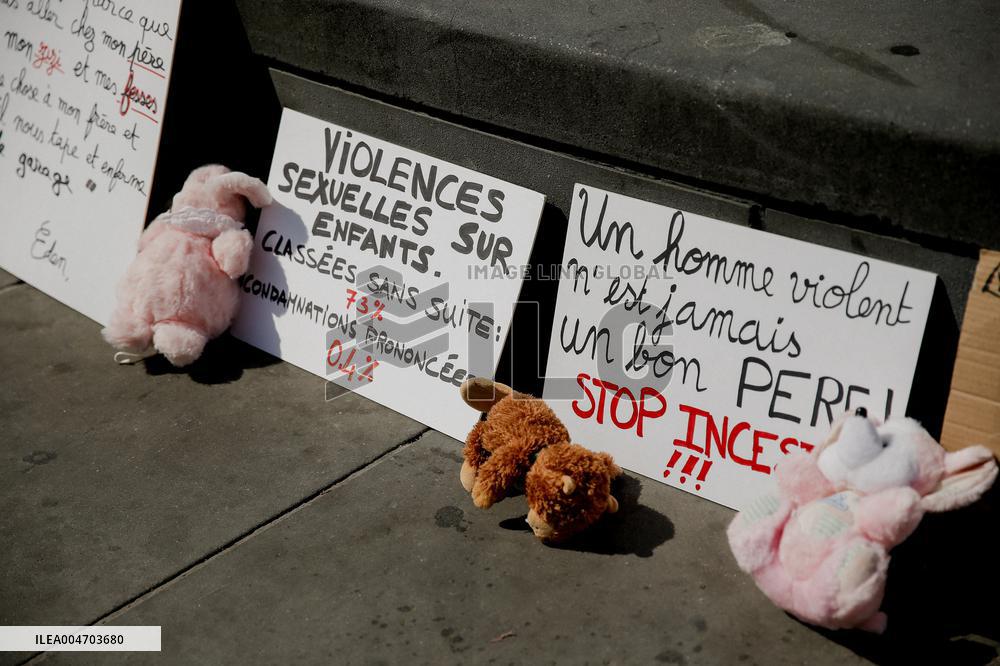 parce que
aller chez mon père
mon zizi et mes fesses
chose à mon frère et
il nous tape et enferme
garage
Eden
VIOLENCES
SEXUELLES SUR
ENFANTS.
CLASSÉES SANS SUITE:
73%
CONDAMNATIONS PRONONCÉES
0,4%
Un homme violent
n'est jamais
un bon PERE!
STOP INCEST
!!!
IMAGE LINK GLOBAL
ILG
ILEA004703680